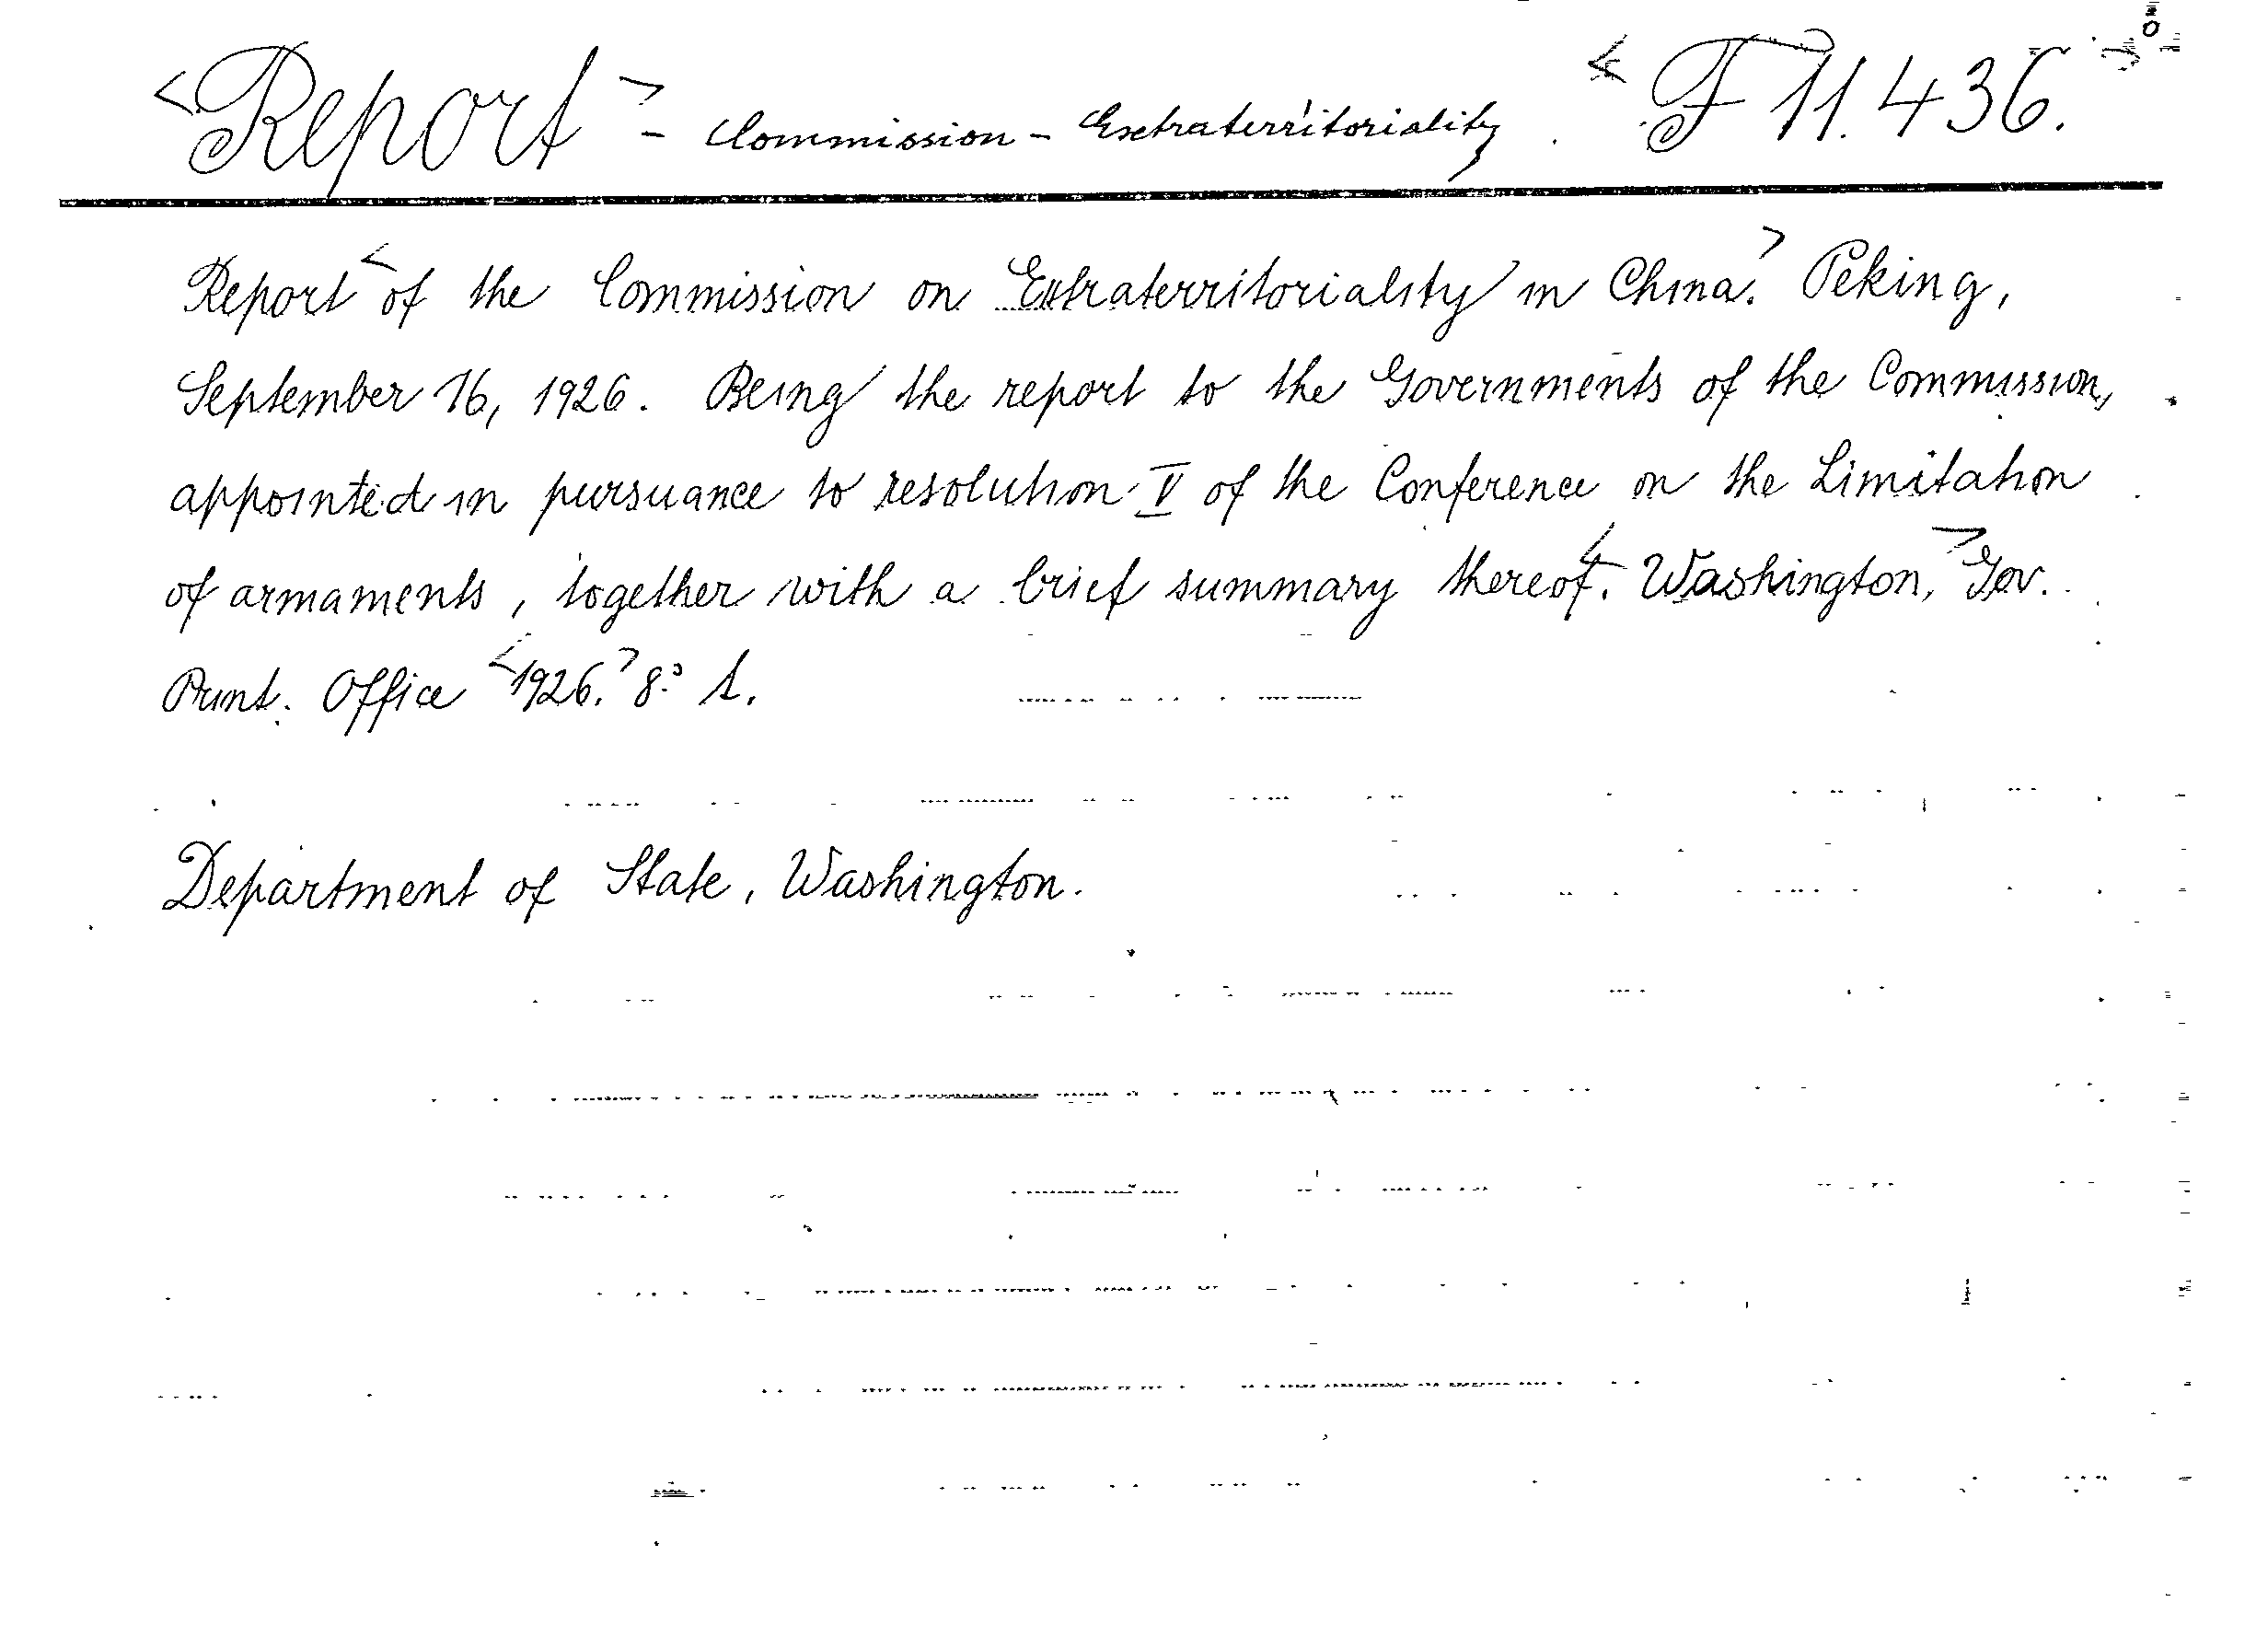 <Report> - Commission - Extraterritoriality. <F 11.436.>
Report <of the Commission on Extraterritoriality in China.> Peking,
September 16, 1926. Being the report to the Governments of the Commission,
appointed in pursuance to resolution V of the Conference on the Limitation
of armaments, together with a brief summary thereof. <Washington,> Gov.
Print. Office <1926.> 8.º t.
Department of State, Washington.